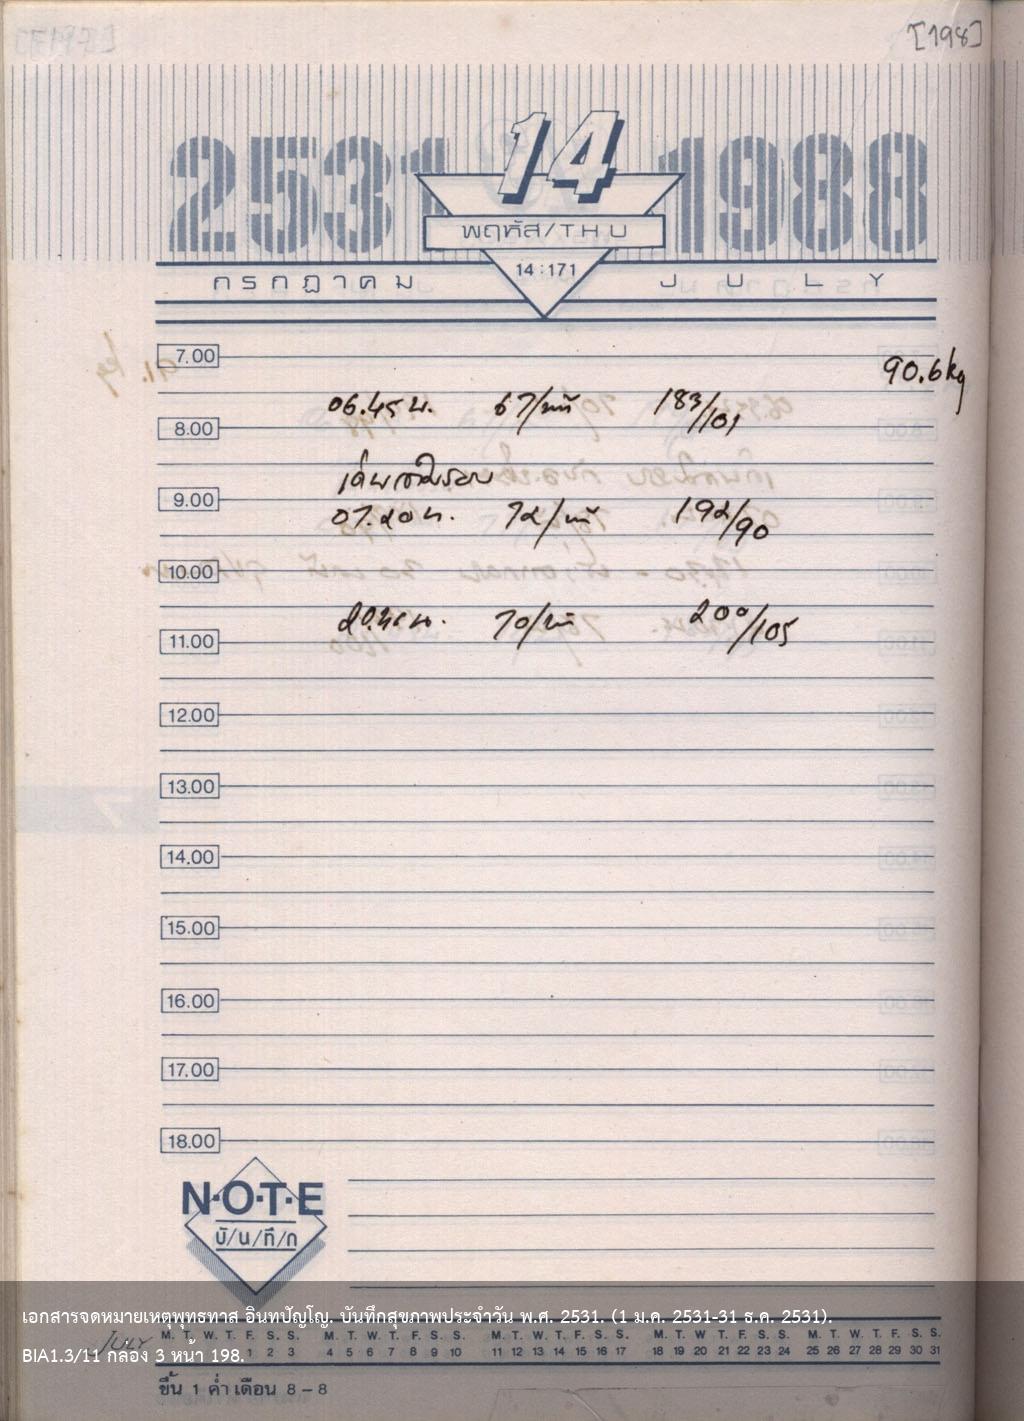 [198]
2531 14 1988
พฤหัส/THU
14:171
กรกฎาคม JULY
7.00
90.6 kg
06.45 น. 67/นาที 183/101
8.00
9.00
07.20 น. 72/นาที 192/90
10.00
น. 70/นาที 200/105
11.00
12.00
13.00
14.00
15.00
16.00
17.00
18.00
N·O·T·E
บั/น/ทึ/ก
เอกสารจดหมายเหตุพุทธทาส อินทปัญโญ. บันทึกสุขภาพประจำวัน พ.ศ. 2531. (1 ม.ค. 2531-31 ธ.ค. 2531).
JULY M. T. W. T. F. S. S. M. T. W. T. F. S. S. M. T. W. T. F. S. S. M. T. W. T. F. S. S. M. T. W. T. F. S. S.
1 2 3 4 5 6 7 8 9 10 11 12 13 14 15 16 17 18 19 20 21 22 23 24 25 26 27 28 29 30 31
BIA1.3/11 กล่อง 3 หน้า 198.
ขึ้น 1 ค่ำ เดือน 8 – 8